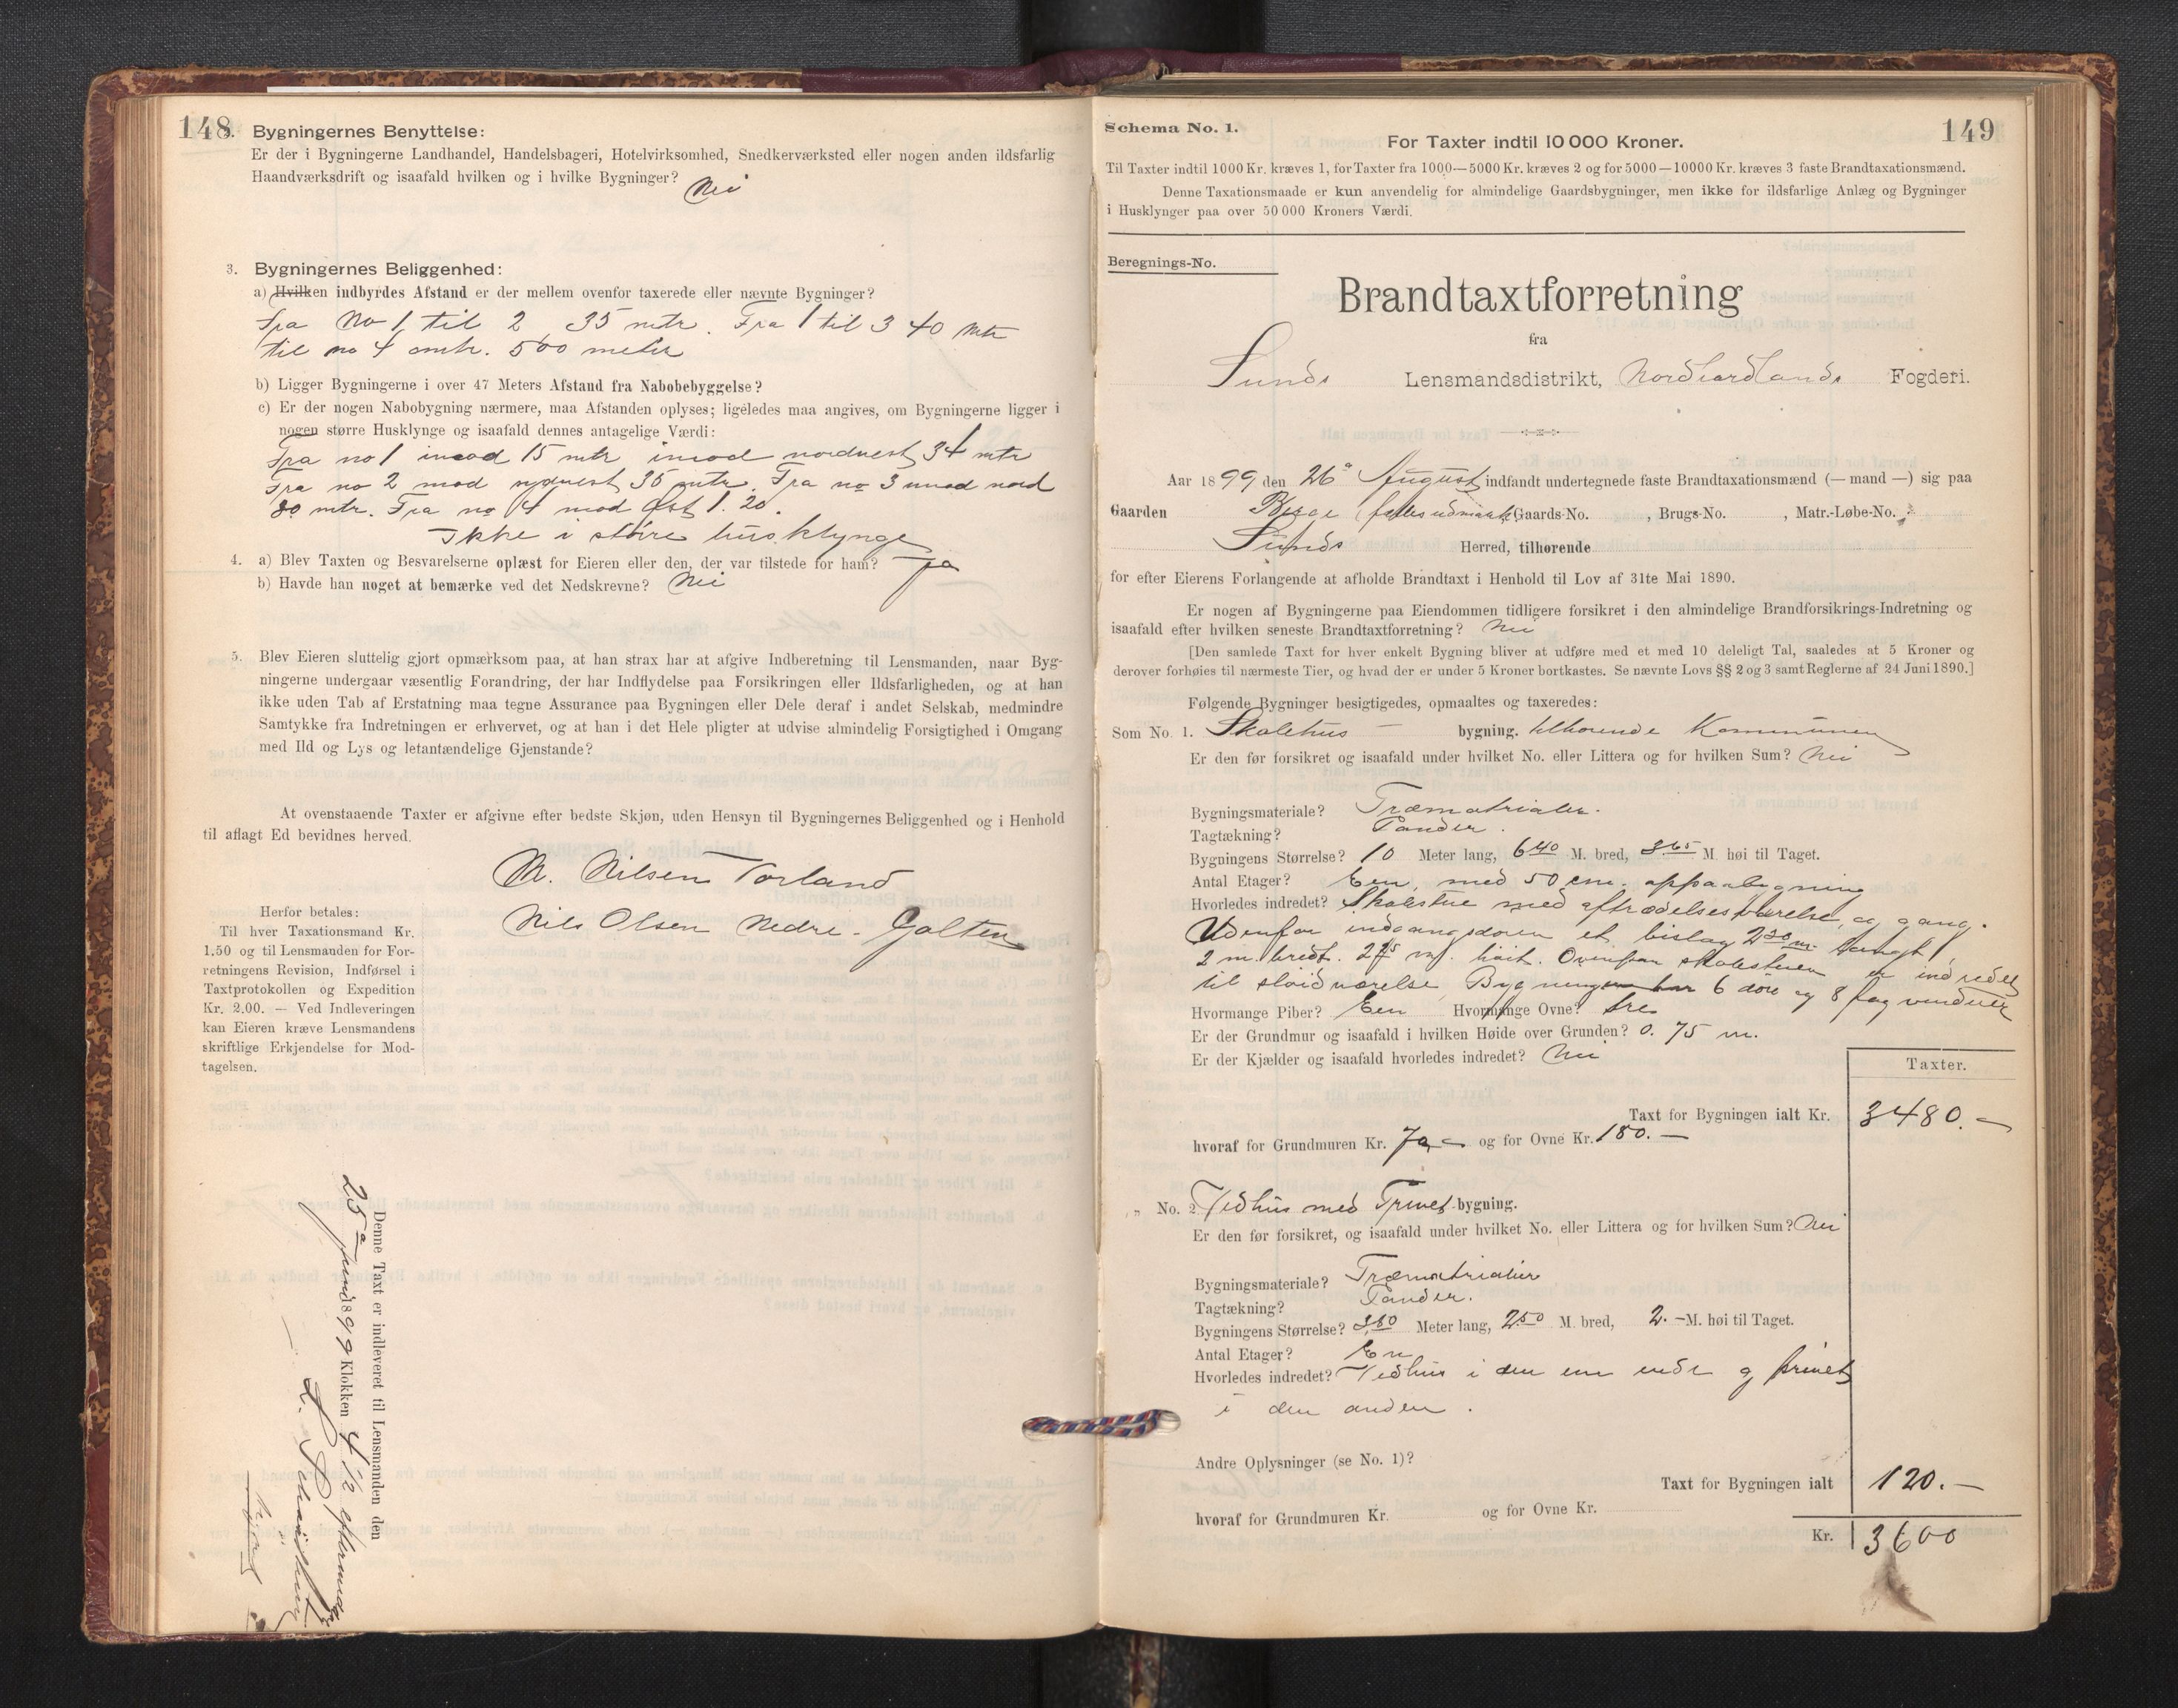 148
2. Bygningernes Benyttelse:
Er der i Bygningerne Landhandel, Handelsbageri, Hotelvirksomhed, Snedkerværksted eller nogen anden ildsfarlig
Haandværksdrift og isaafald hvilken og i hvilke Bygninger? Nei
3. Bygningernes Beliggenhed:
a) Hvilken indbyrdes Afstand er der mellem ovenfor taxerede eller nævnte Bygninger?
Fra No 1 til 2 35 mtr. Fra 1 til 3 40 mtr
til no 4 omtr. 500 meter
b) Ligger Bygningerne i over 47 Meters Afstand fra Nabobebyggelse?
c) Er der nogen Nabobygning nærmere, maa Afstanden oplyses; ligeledes maa angives, om Bygningerne ligger i
nogen større Husklynge og isaafald dennes antagelige Værdi:
Fra no 1 imod 15 mtr imod nordvest 34 mtr
Fra no 2 mod sydvest 35 mtr. Fra no 3 imod nord
80 mtr. Fra no 4 mod Øst 1.20.
Ikke i større husklynge
4. a) Blev Taxten og Besvarelserne oplæst for Eieren eller den, der var tilstede for ham? Ja
b) Havde han noget at bemærke ved det Nedskrevne? Nei
5. Blev Eieren sluttelig gjort opmærksom paa, at han strax har at afgive Indberetning til Lensmanden, naar Byg-
ningerne undergaar væsentlig Forandring, der har Indflydelse paa Forsikringen eller Ildsfarligheden, og at han
ikke uden Tab af Erstatning maa tegne Assurance paa Bygningen eller Dele deraf i andet Selskab, medmindre
Samtykke fra Indretningen er erhvervet, og at han i det Hele pligter at udvise almindelig Forsigtighed i Omgang
med Ild og Lys og letantændelige Gjenstande?
At ovenstaaende Taxter er afgivne efter bedste Skjøn, uden Hensyn til Bygningernes Beliggenhed og i Henhold
til aflagt Ed bevidnes herved.
M. Nilsen Torland
Nils Olsen Nedre-Golten
Herfor betales:
Til hver Taxationsmand Kr.
1.50 og til Lensmanden for For-
retningens Revision, Indførsel i
Taxtprotokollen og Expedition
Kr. 2.00. — Ved Indleveringen
kan Eieren kræve Lensmandens
skriftlige Erkjendelse for Mod-
tagelsen.
Denne Taxt er indleveret til Lensmanden den
25 1899 Klokken 4 1/2 eftermidd
149
Schema No. 1.
For Taxter indtil 10 000 Kroner.
Til Taxter indtil 1000 Kr. kræves 1, for Taxter fra 1000—5000 Kr. kræves 2 og for 5000—10000 Kr. kræves 3 faste Brandtaxationsmænd.
Denne Taxationsmaade er kun anvendelig for almindelige Gaardsbygninger, men ikke for ildsfarlige Anlæg og Bygninger
i Husklynger paa over 50 000 Kroners Værdi.
Beregnings-No.
Brandtaxtforretning
fra
Sunds Lensmandsdistrikt, Nordhordlands Fogderi.
Aar 1899 den 26 August indfandt undertegnede faste Brandtaxationsmænd (— mand —) sig paa
Gaarden Berge fælles udmark, Gaards-No. , Brugs-No. , Matr.-Løbe-No. ,
Sunds Herred, tilhørende
for efter Eierens Forlangende at afholde Brandtaxt i Henhold til Lov af 31te Mai 1890.
Er nogen af Bygningerne paa Eiendommen tidligere forsikret i den almindelige Brandforsikrings-Indretning og
isaafald efter hvilken seneste Brandtaxtforretning? Nei
[Den samlede Taxt for hver enkelt Bygning bliver at udføre med et med 10 deleligt Tal, saaledes at 5 Kroner og
derover forhøies til nærmeste Tier, og hvad der er under 5 Kroner bortkastes. Se nævnte Lovs §§ 2 og 3 samt Reglerne af 24 Juni 1890.]
Følgende Bygninger besigtigedes, opmaaltes og taxeredes:
Som No. 1. Skolehus bygning. tilhørende Kommunen
Er den før forsikret og isaafald under hvilket No. eller Littera og for hvilken Sum? Nei
Bygningsmateriale? Træmatrialer.
Tagtækning? Pander.
Bygningens Størrelse? 10 Meter lang, 6 40 M. bred, 3.65 M. høi til Taget.
Antal Etager? Een, med 50 cm. oppaabygning
Hvorledes indredet? Skolestue med aftrædelsesværelse og gang.
Udenfor indgangsdøren et bislag 2 20 m. langt,
2 m. bredt. 2 75 m. høit. Ovenfor skolestuen er indredet
til sløidværelse. Bygningen har 6 døre og 8 fag vinduer
Hvormange Piber? Een Hvormange Ovne? tre
Er der Grundmur og isaafald i hvilken Høide over Grunden? 0.75 m.
Er der Kjælder og isaafald hvorledes indredet? Nei
Taxter.
Taxt for Bygningen ialt Kr. 3480.—
hvoraf for Grundmuren Kr. 70.— og for Ovne Kr. 180.—
" No. 2 Vedhus med Privet bygning.
Er den før forsikret, og isaafald under hvilket No. eller Littera og for hvilken Sum? Nei
Bygningsmateriale? Træmatrialier
Tagtækning? Pander.
Bygningens Størrelse? 3.80 Meter lang, 2.50 M. bred, 2.— M. høi til Taget.
Antal Etager? En
Hvorledes indredet? Vedhus i den ene ende og privet
i den anden.
Andre Oplysninger (se No. 1)?
Taxt for Bygningen ialt 120.—
hvoraf for Grundmuren Kr. og for Ovne Kr.
Kr. 3600